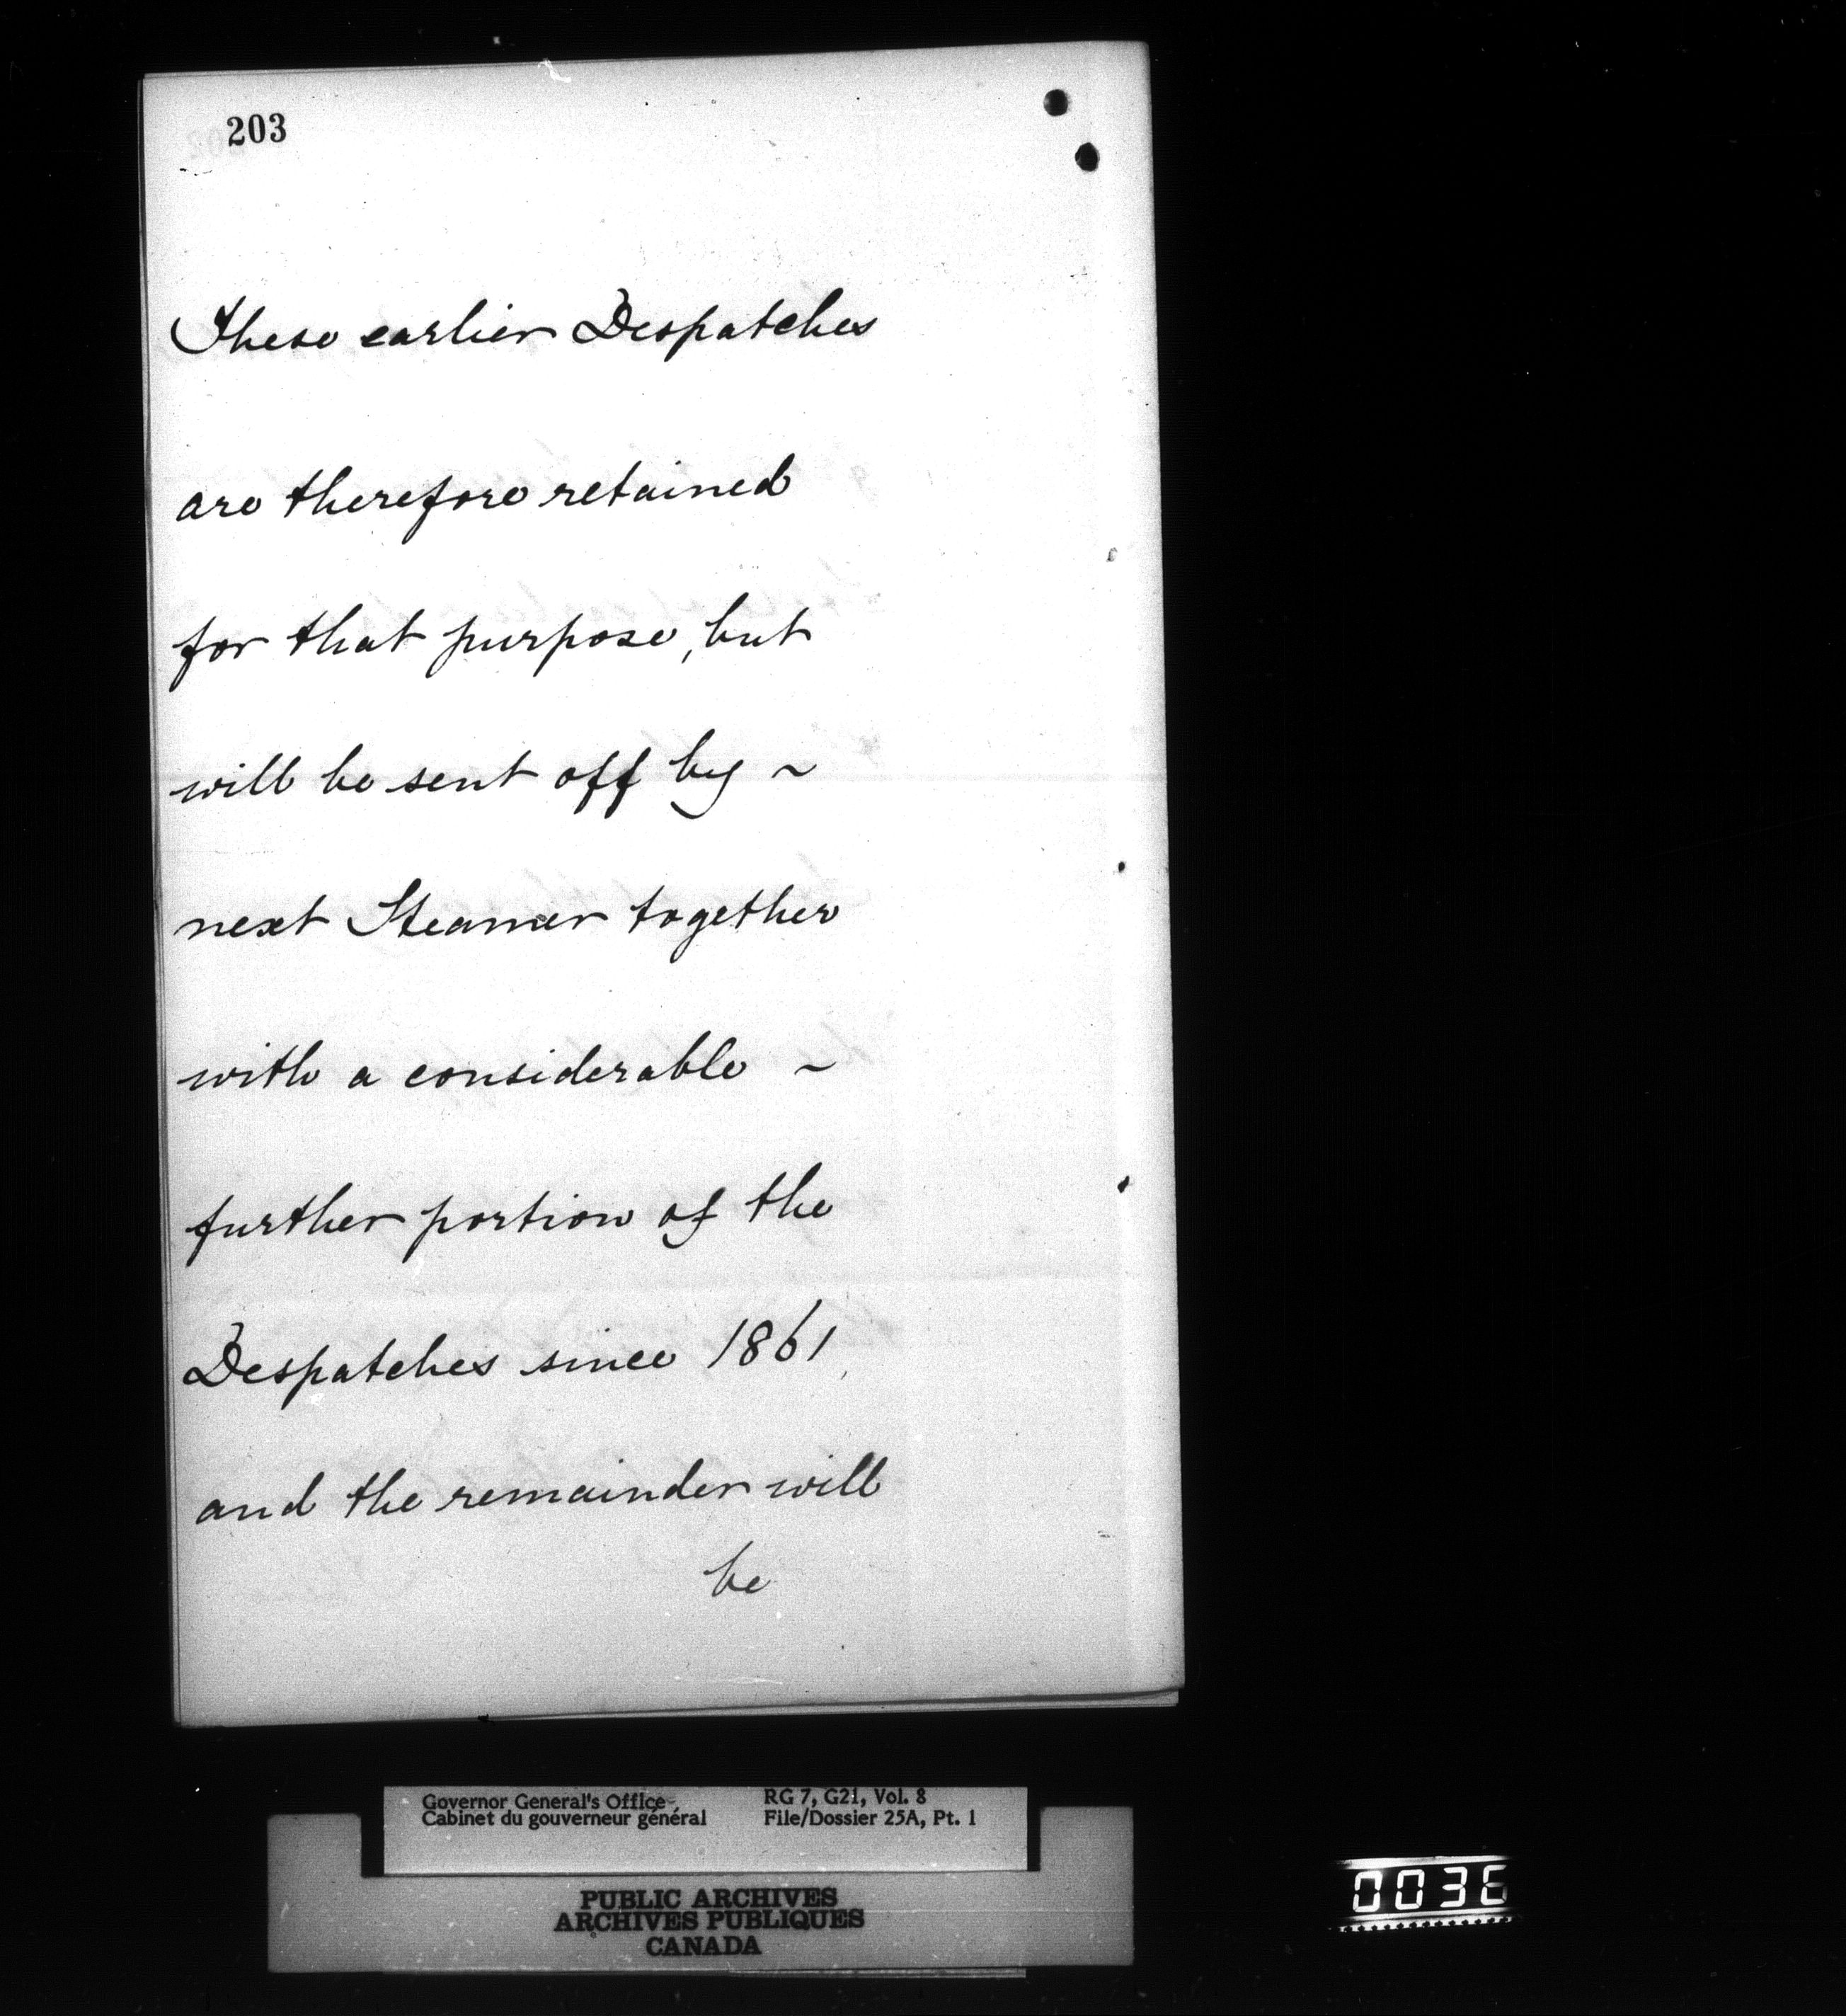 203
These earlier Despatches
are therefore retained
for that purpose, but
will be sent off by ~
next Steamer together
with a considerable ~
further portion of the
Despatches since 1861,
and the remainder will
be
Governor General's Office
Cabinet du gouverneur général
RG 7, G21, Vol. 8
File/Dossier 25A, Pt. 1
PUBLIC ARCHIVES
ARCHIVES PUBLIQUES
CANADA
0036